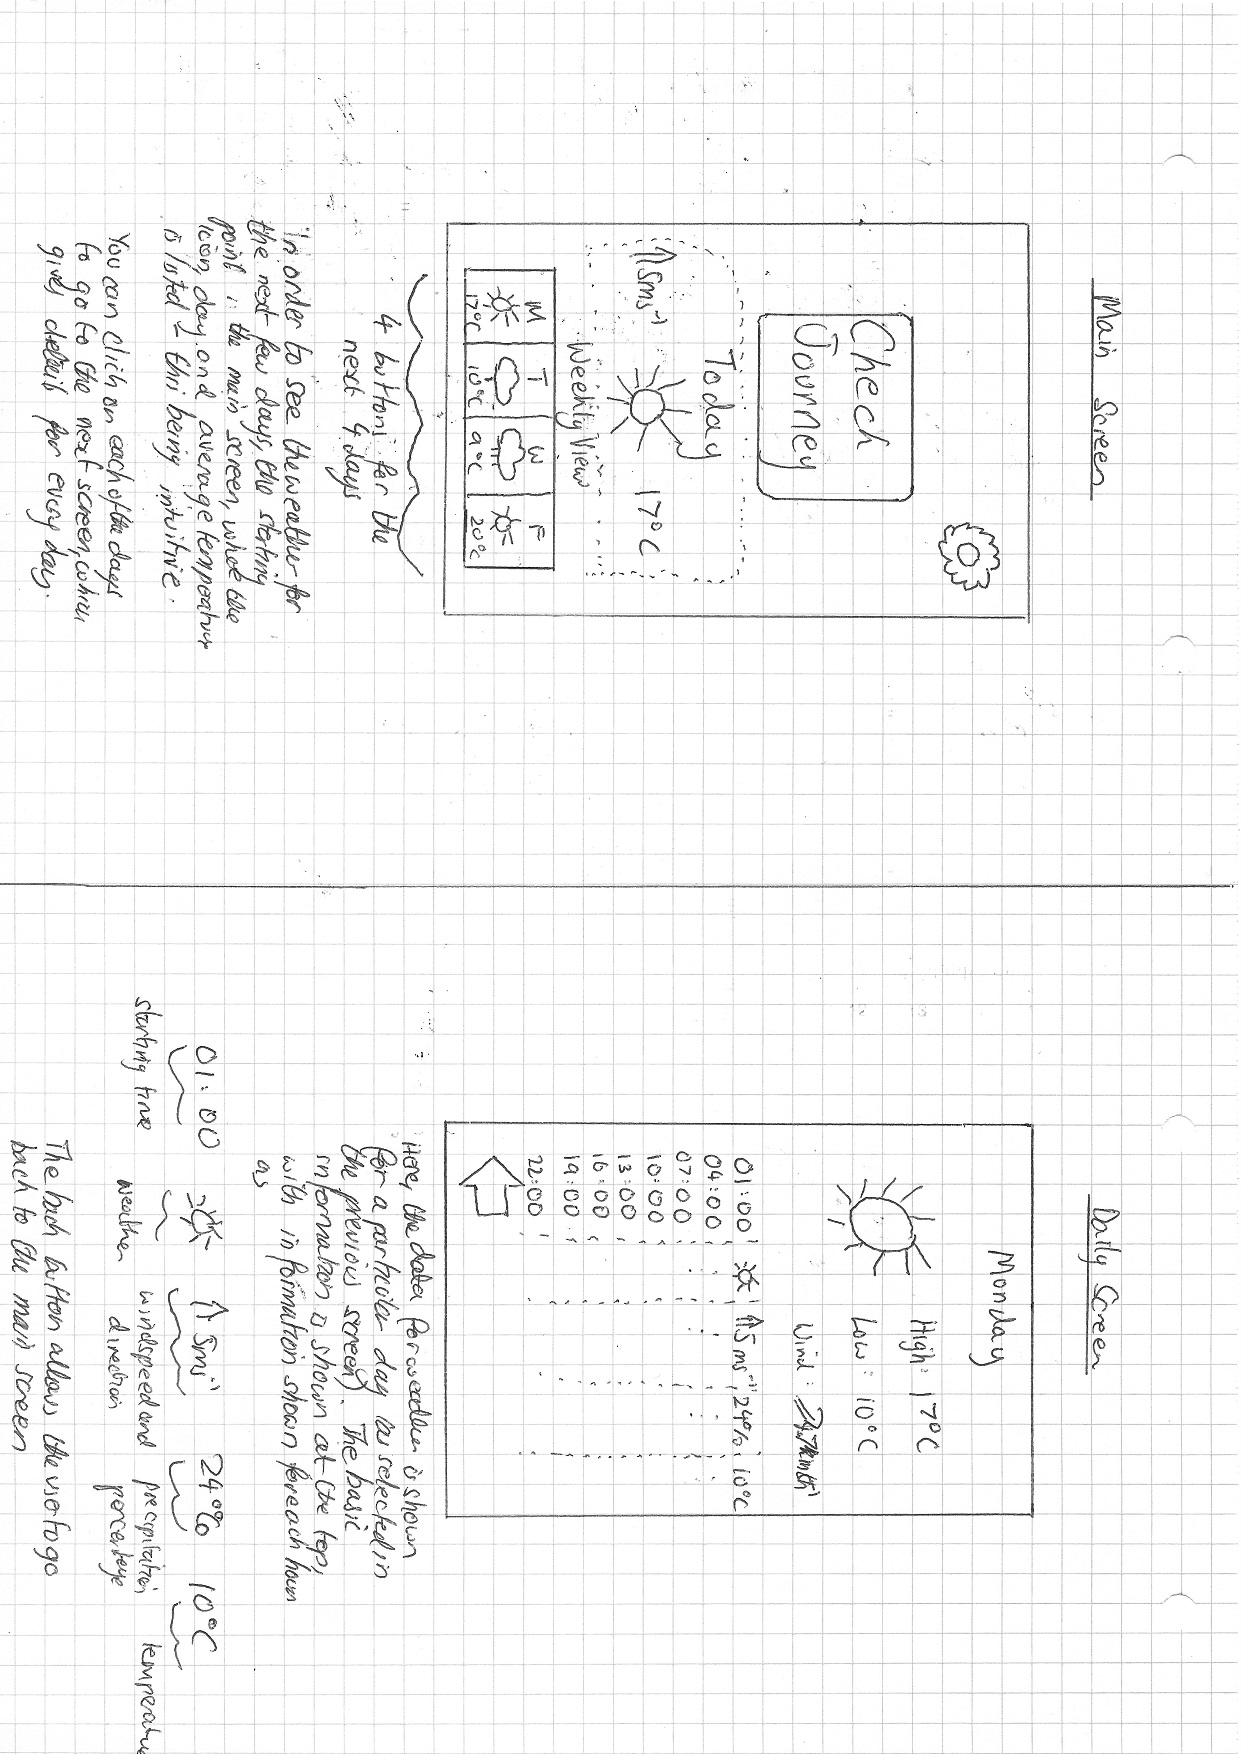 Main Screen
Check
Journey
Today
↑5ms⁻¹
17°C
Weekly View
M T W F
17°C 10°C 9°C 20°C
4 buttons for the
next 4 days
In order to see the weather for
the next few days, the starting
point is the main screen, where the
icon, day, and average temperature
is listed - this being intuitive.
You can click on each of the days
to go to the next screen, which
gives details for every day.
Daily Screen
Monday
High: 17°C
Low: 10°C
Wind:
01:00 ↑5ms⁻¹ 24% 10°C
04:00
07:00
10:00
13:00
16:00
19:00
22:00
Here, the data for weather is shown
for a particular day (as selected in
the previous screen). The basic
information is shown at the top,
with information shown for each hour
as
01:00 ↑5ms⁻¹ 24% 10°C
starting time weather windspeed and direction precipitation percentage temperature
The back button allows the user to go
back to the main screen